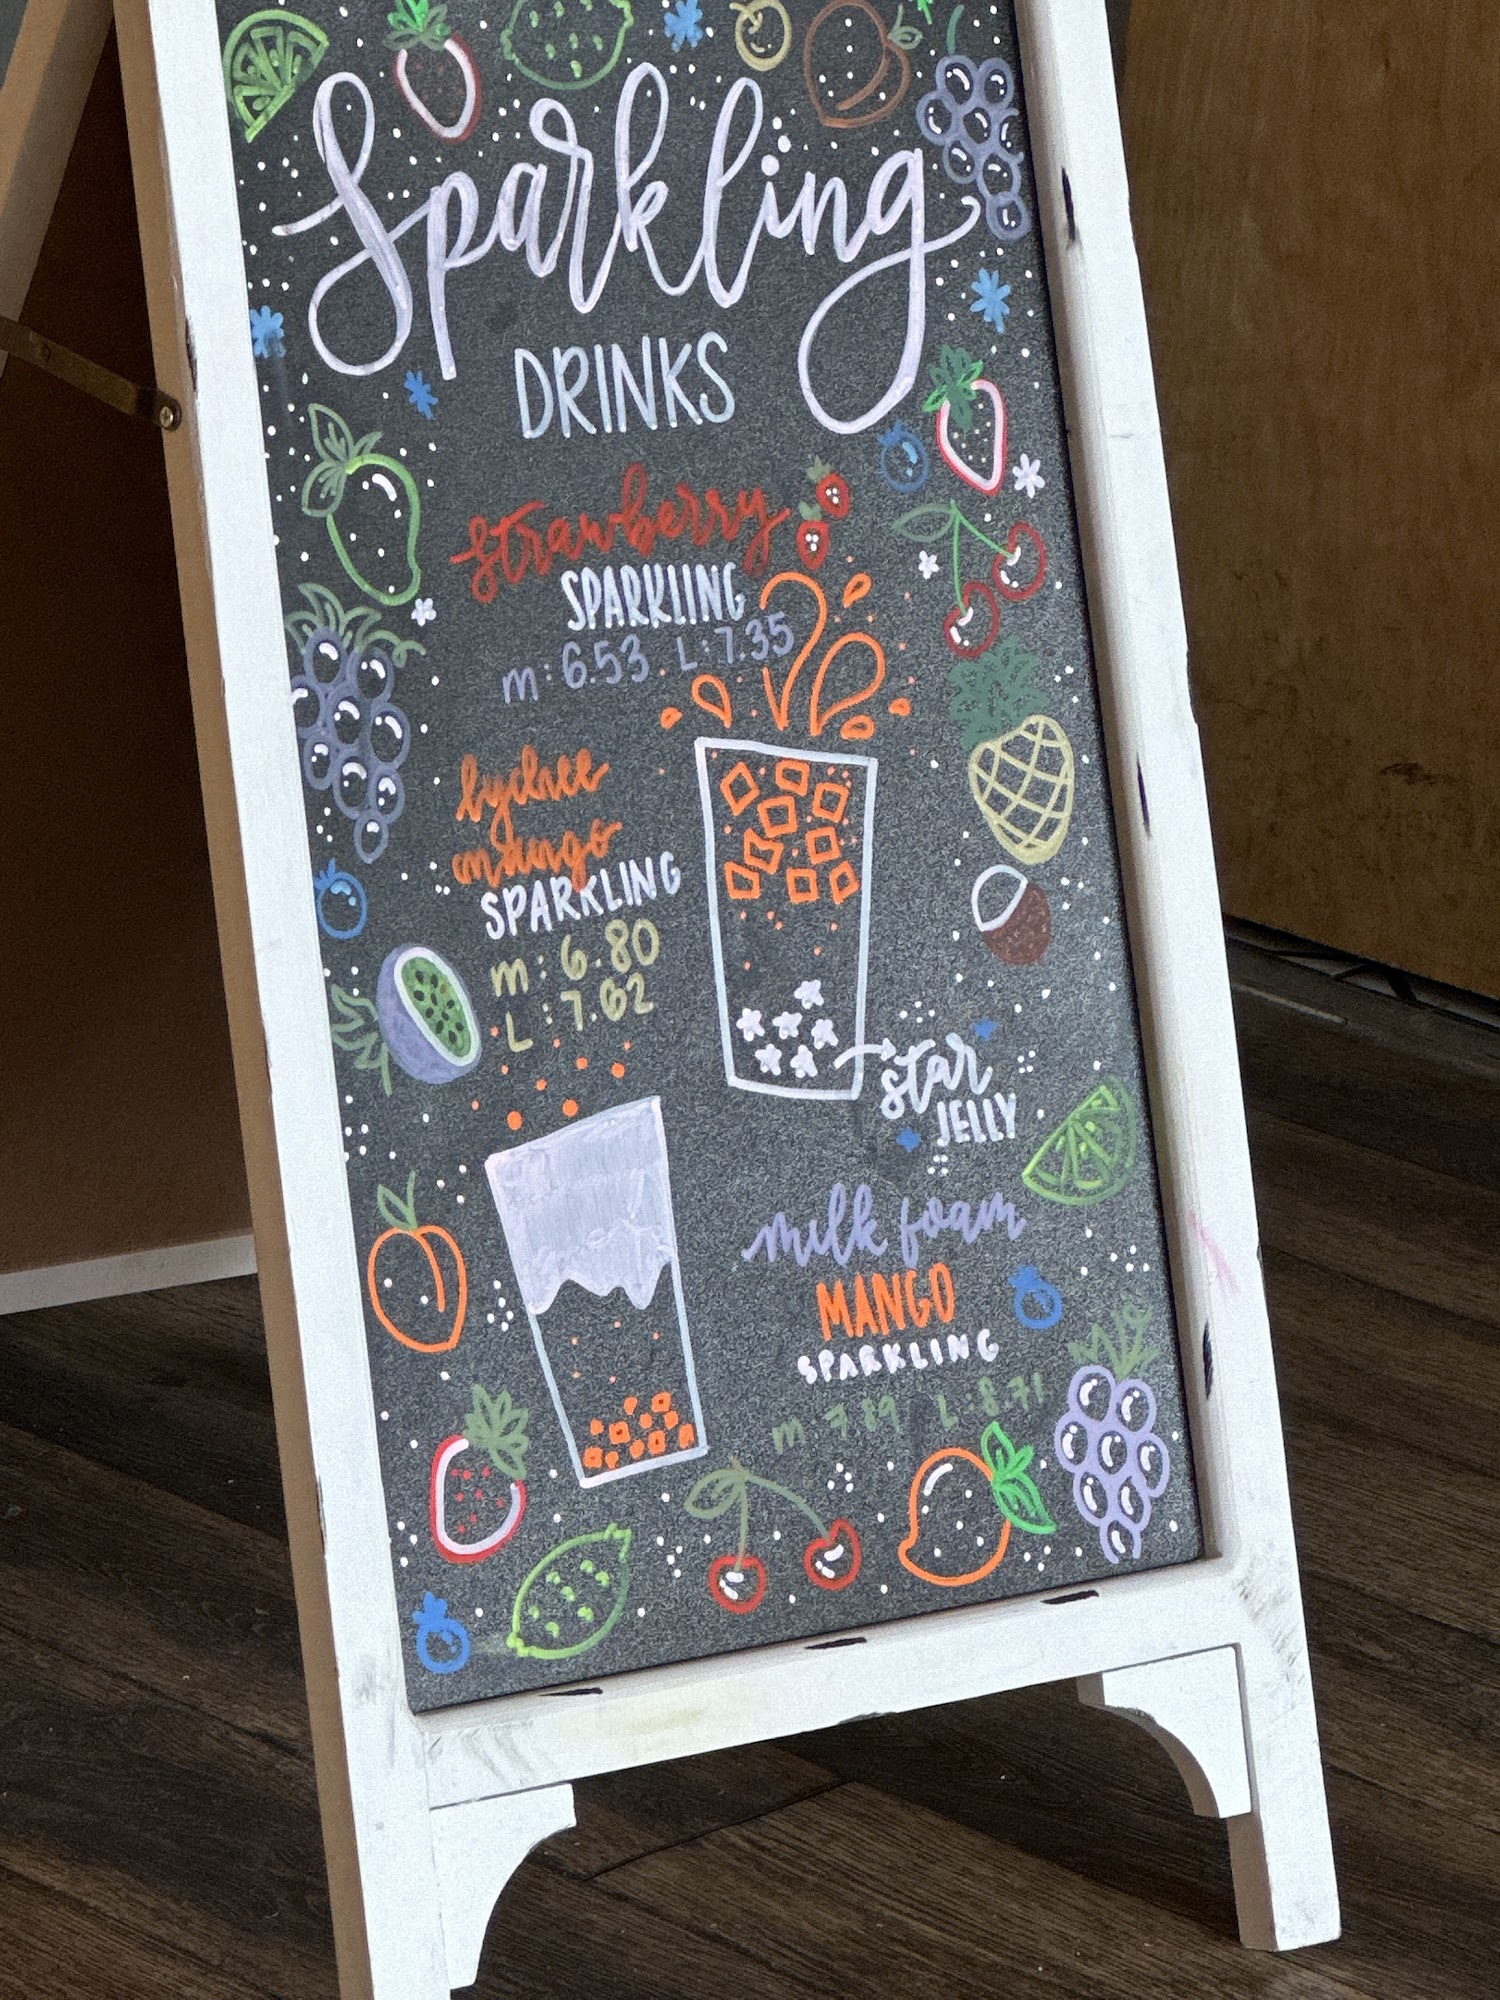 Sparkling
DRINKS
strawberry
SPARKLING
m: 6.53 L: 7.35
lychee
mango
SPARKLING
m: 6.80
L: 7.62
star
JELLY
milk foam
MANGO
SPARKLING
m: 7.89 L: 8.71